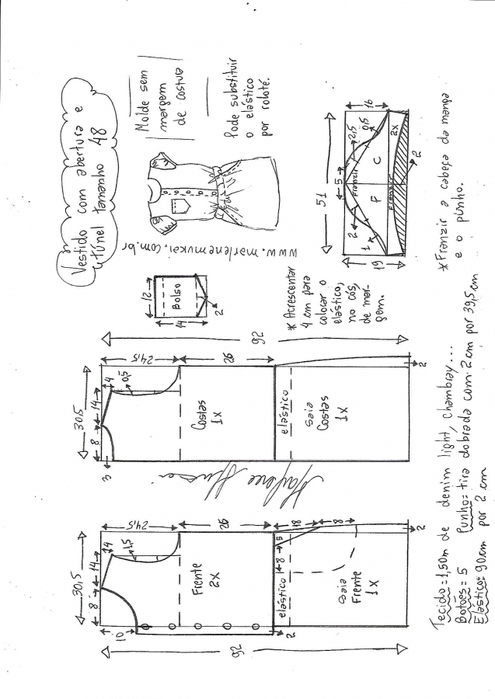 Vestido com abertura e
túnel tamanho 48
Molde sem
margem
de costura
Pode substituir
o elástico
por roloté.
www.marlenemukai.com.br
12
Bolso
14
2
51
5
16
2
2,5
0,5
1
Franzir
F
C
Franzir
2x
19
2
* Acrescentar
4 cm para
colocar o
elástico,
no cós,
de mar-
gem.
* Franzir a cabeça da manga
e o punho.
92
30,5
8
14
4
0,5
3
24,5
26
Costas
1x
elástico
saia
Costas
1x
2
Marlene Mukai
30,5
8
14
4
1,5
10
24,5
26
Frente
2x
2
elástico
8
5
18
18
saia
Frente
1x
2
92
Tecido = 1,50m de denim light, Chambray....
Botões = 5 Punho = tira dobrada com 2 cm por 39,5 cm
Elástico: 90 cm por 2 cm